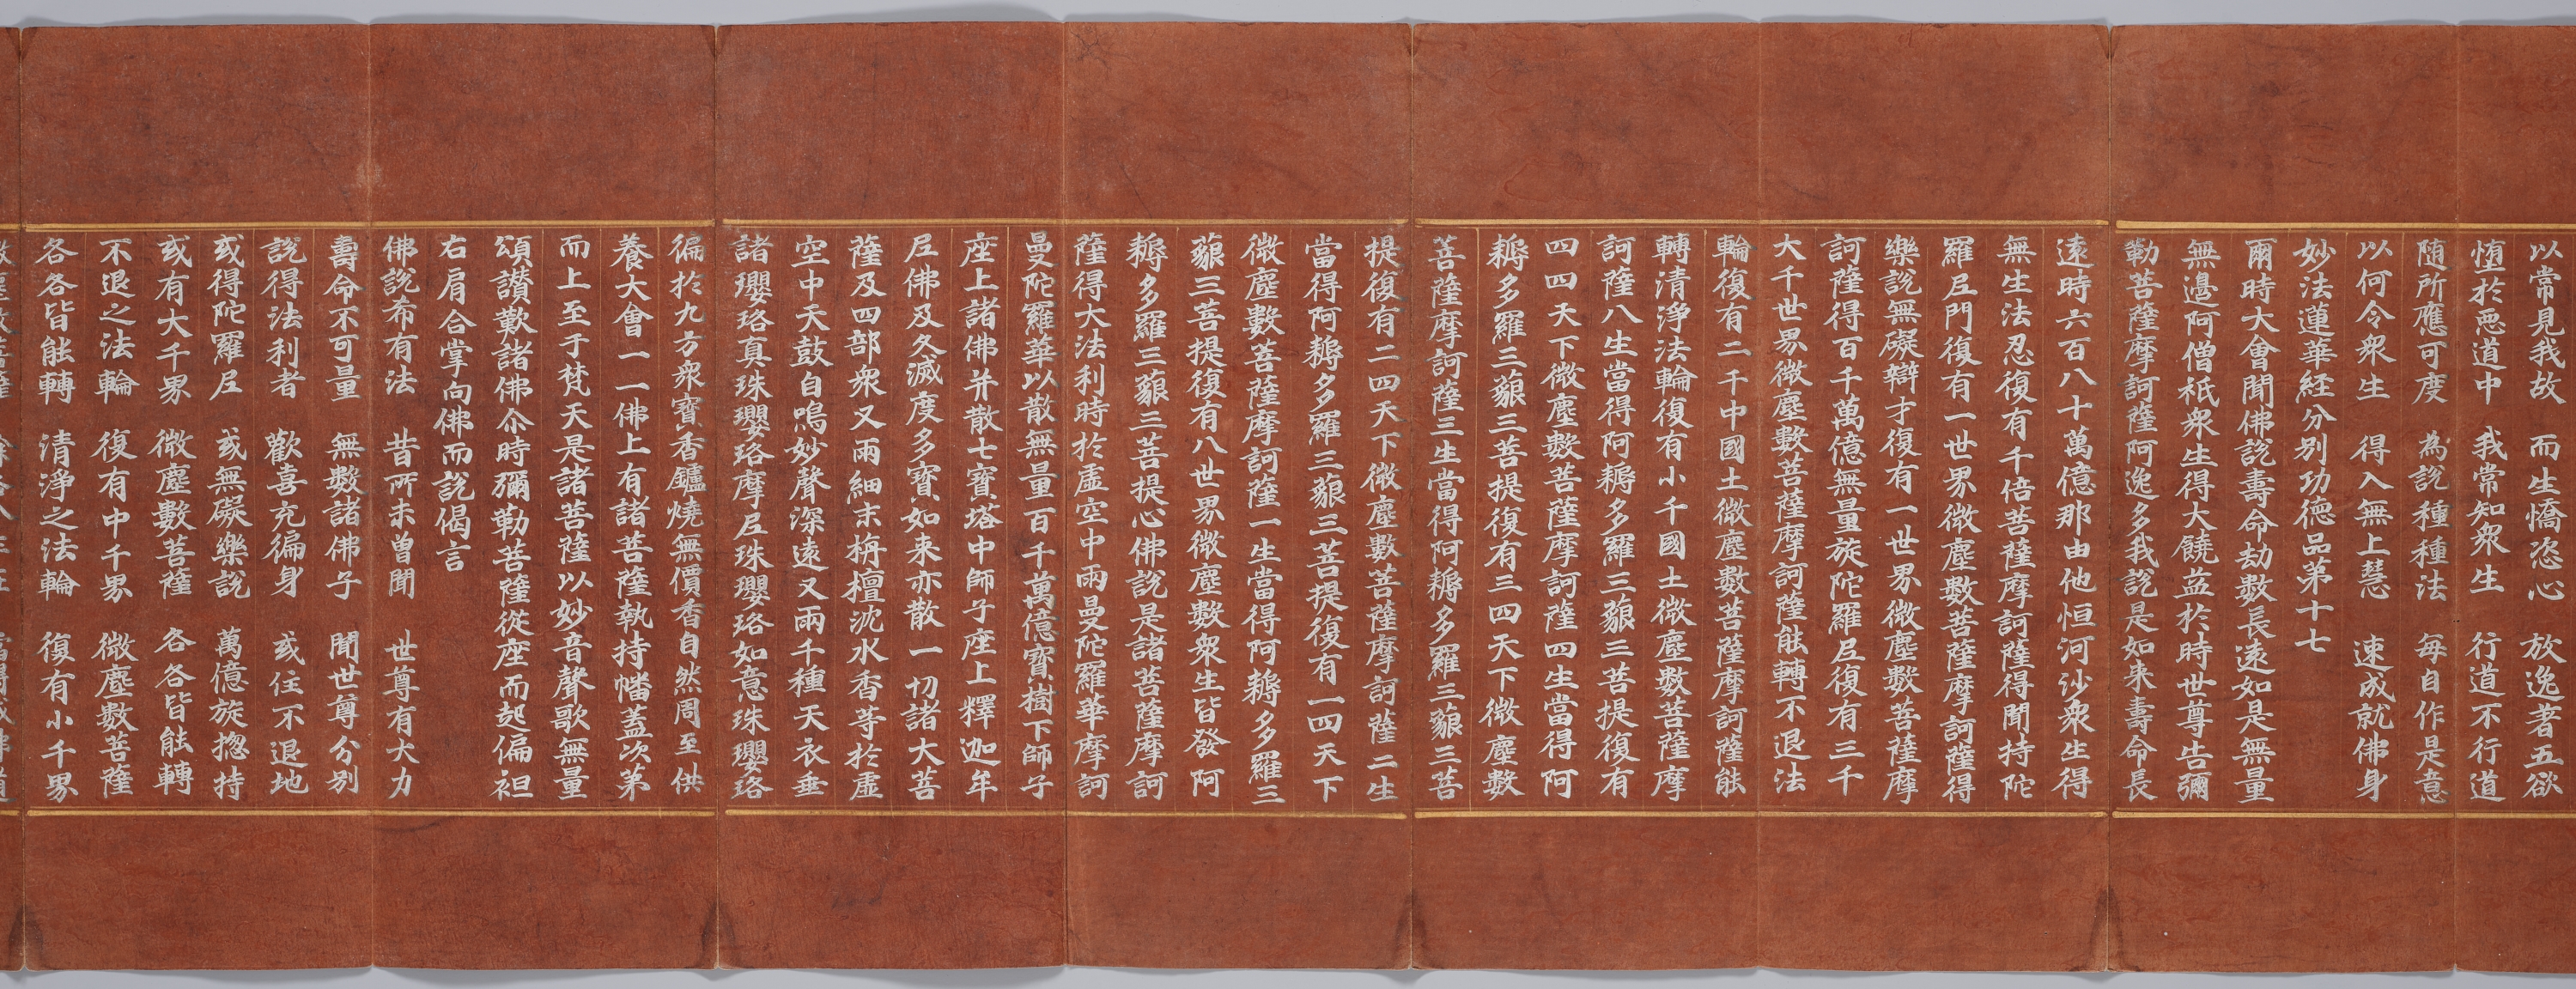 以常見我故　而生憍恣心　放逸著五欲
墮於惡道中　我常知衆生　行道不行道
随所應可度　為說種種法　每自作是意
以何令衆生　得入無上慧　速成就佛身
妙法蓮華経分别功徳品第十七
爾時大會聞佛說壽命劫數長逺如是無量
無邊阿僧祇衆生得大饒益於時世尊告彌
勒菩薩摩訶薩阿逸多我說是如来壽命長
逺時六百八十萬億那由他恒河沙衆生得
無生法忍復有千倍菩薩摩訶薩得聞持陀
羅尼門復有一世界微塵數菩薩摩訶薩得
樂說無礙辯才復有一世界微塵數菩薩摩
訶薩得百千萬億無量旋陀羅尼復有三千
大千世界微塵數菩薩摩訶薩能轉不退法
輪復有二千中國土微塵數菩薩摩訶薩能
轉清淨法輪復有小千國土微塵數菩薩摩
訶薩八生當得阿耨多羅三藐三菩提復有
四四天下微塵數菩薩摩訶薩四生當得阿
耨多羅三藐三菩提復有三四天下微塵數
菩薩摩訶薩三生當得阿耨多羅三藐三菩
提復有二四天下微塵數菩薩摩訶薩二生
當得阿耨多羅三藐三菩提復有一四天下
微塵數菩薩摩訶薩一生當得阿耨多羅三
藐三菩提復有八世界微塵數衆生皆發阿
耨多羅三藐三菩提心佛說是諸菩薩摩訶
薩得大法利時於虚空中雨曼陀羅華摩訶
曼陀羅華以散無量百千萬億寳樹下師子
座上諸佛并散七寳塔中師子座上釋迦牟
尼佛及久滅度多寳如来亦散一切諸大菩
薩及四部衆又雨細末栴檀沈水香等於虚
空中天鼓自鳴妙聲深逺又雨千種天衣垂
諸瓔珞真珠瓔珞摩尼珠瓔珞如意珠瓔珞
徧於九方衆寳香鑪燒無價香自然周至供
養大會一一佛上有諸菩薩執持幡蓋次第
而上至于梵天是諸菩薩以妙音聲歌無量
頌讃歎諸佛尒時彌勒菩薩從座而起偏袒
右肩合掌向佛而說偈言
佛說希有法　昔所未曽聞　世尊有大力
壽命不可量　無數諸佛子　聞世尊分别
說得法利者　歡喜充徧身　或住不退地
或得陀羅尼　或無礙樂說　萬億旋揔持
或有大千界　微塵數菩薩　各各皆能轉
不退之法輪　復有中千界　微塵數菩薩
各各皆能轉　清淨之法輪　復有小千界